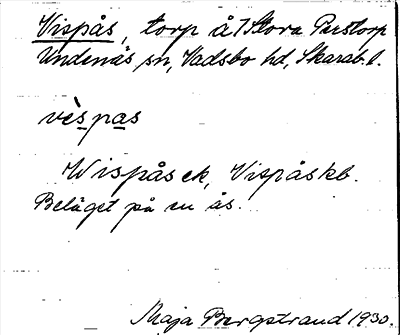 Vispås, torp å 7 Stora Perstorp
Undenäs sn, Vadsbo hd, Skarab. l.
vèspas
Wispås ek, Vispås kb.
Beläget på en ås.
Maja Bergstrand 1930.